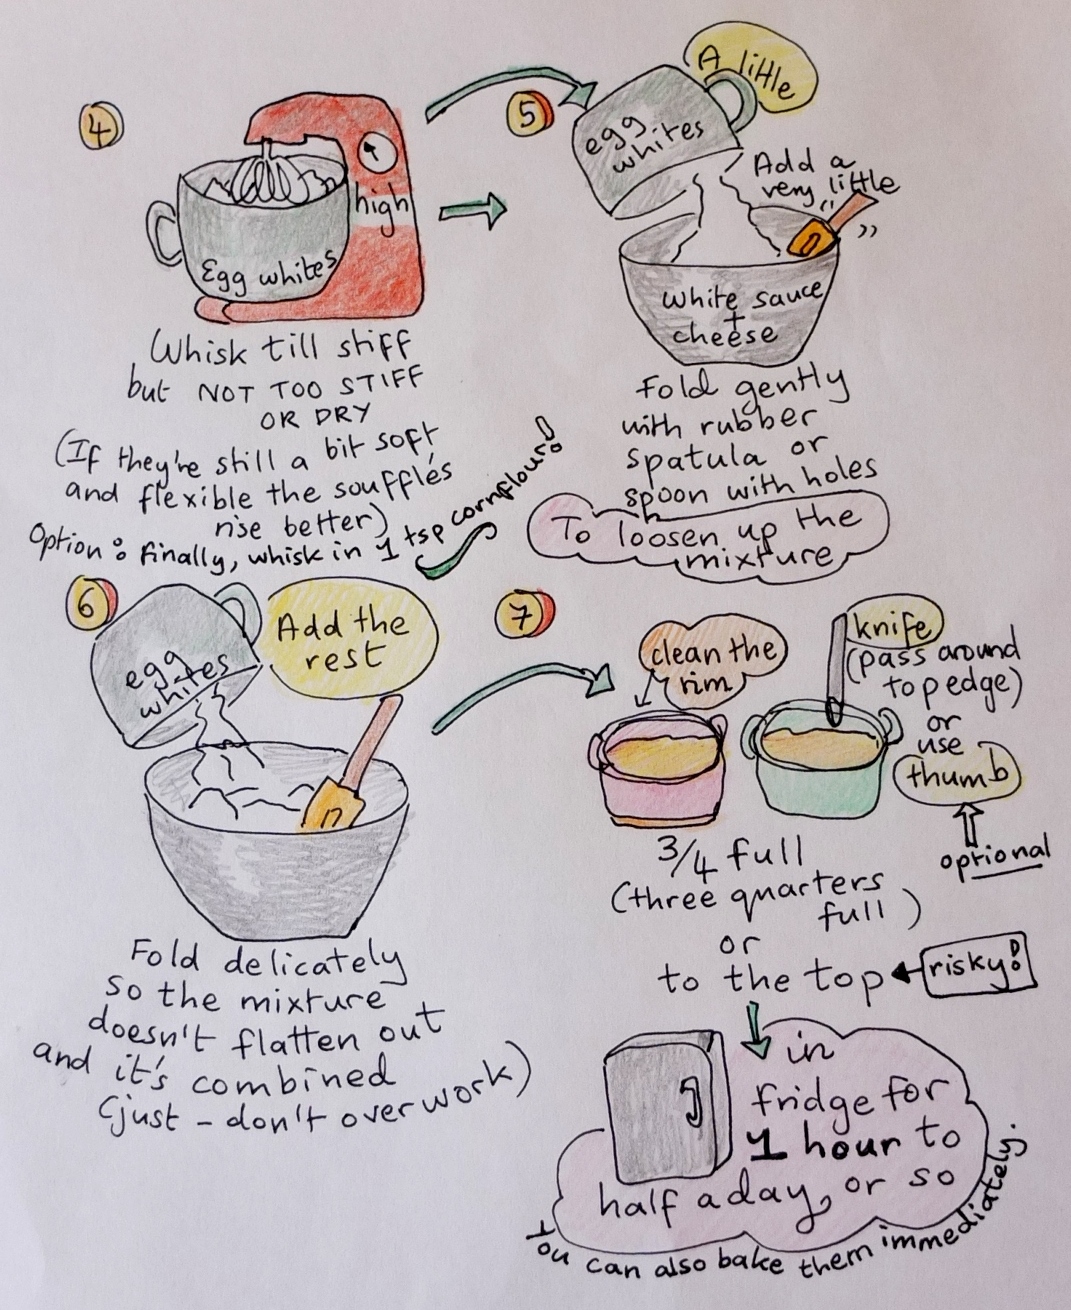 4
high
Egg whites
Whisk till stiff
but NOT TOO STIFF
OR DRY
(If they're still a bit soft
and flexible the soufflés
rise better)
Option: finally, whisk in 1 tsp cornflour!
5
A little
egg
whites
Add a
very little
white sauce
+
cheese
Fold gently
with rubber
spatula or
spoon with holes
To loosen up the
mixture
6
egg
whites
Add the
rest
Fold delicately
so the mixture
doesn't flatten out
and it's combined
(just - don't overwork)
7
clean the
rim
knife
(pass around
top edge)
or
use
thumb
optional
3/4 full
(three quarters
full)
or
to the top
risky!
in
fridge for
1 hour to
half a day, or so
You can also bake them immediately.